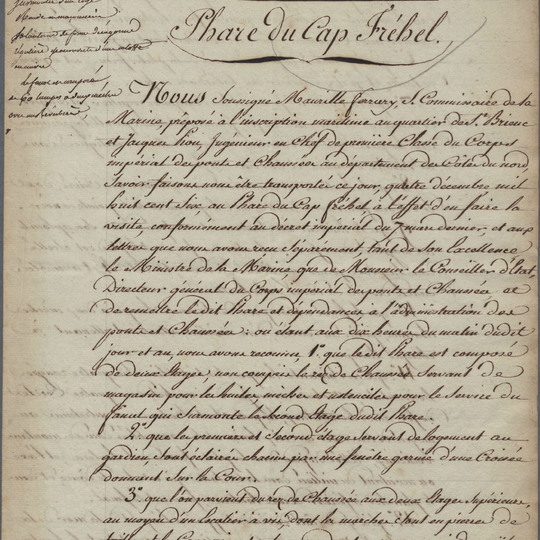 Phare du Cap Fréhel.
Nous Soussigné Mauville S. Commissaire de la
Marine, préposé à l'inscription maritime au quartier de St. Brieuc
et Jacques Piou, Ingénieur en Chef de première Classe du Corps
impérial des ponts et Chaussées au département des Côtes du nord,
Savoir faisons nous être transportés ce jour, quatre décembre mil
huit cent Six, au Phare du Cap Fréhel à l'effet d'en faire la
visite conformément au décret impérial du 7 mars dernier, et aux
lettres que nous avons reçu Séparément, tant de Son Excellence
le Ministre de la Marine, que de Monsieur le Conseiller d'Etat,
Directeur général du Corps impérial des ponts et Chaussées et
de remettre le dit Phare et dépendances à l'administration des
ponts et Chaussées : ou étant aux dix heures du matin dudit
jour et an, nous avons reconnu, 1.° que le dit Phare est composé
de deux étages, non compris le rez de Chaussée Servant de
magasin pour les huiles, mêches et ustenciles pour le Service du
fanal qui Surmonte le Second étage dudit Phare.
2.° que les premier et Second étage Servant de logement au
gardien, Sont éclairés chacun par une fenêtre garnie d'une Croisée
donnant Sur la Cour.
3.° que l'on parvient du rez de Chaussée aux deux étages Supérieurs,
au moyen d'un Escalier à vis, dont les marches Sont en pierres de